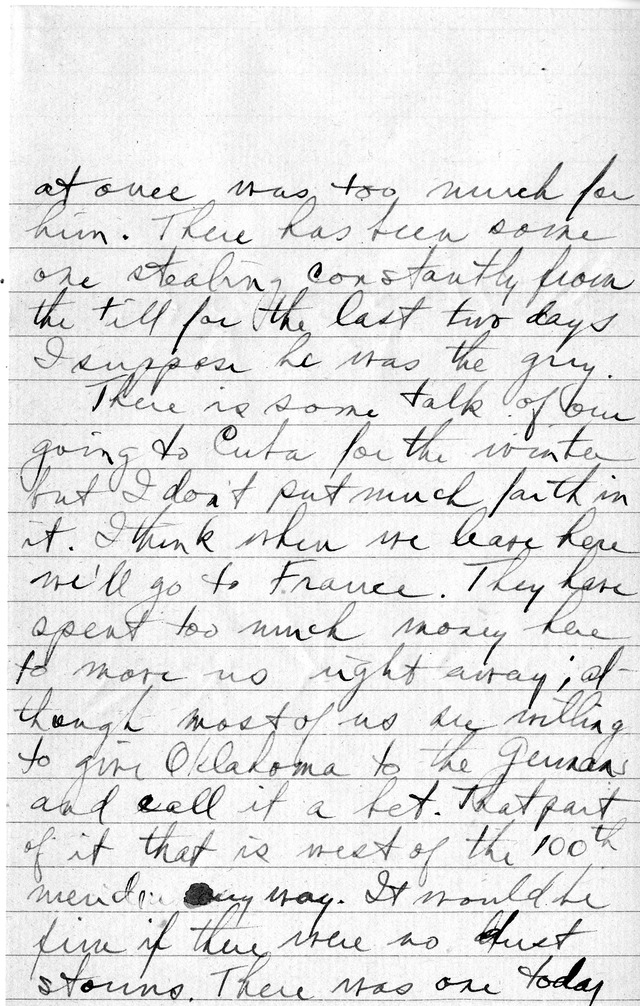 at once was too much for
him. There has been some
one stealing constantly from
the till for the last two days
I suppose he was the guy.
There is some talk of our
going to Cuba for the winter
but I don't put much faith in
it. I think when we leave here
we'll go to France. They have
spent too much money here
to move us right away; al-
though most of us are willing
to give Oklahoma to the Germans
and call it a bet. That part
of it that is west of the 100th
meridian anyway. It would be
fine if there were no dust
storms. There was one today